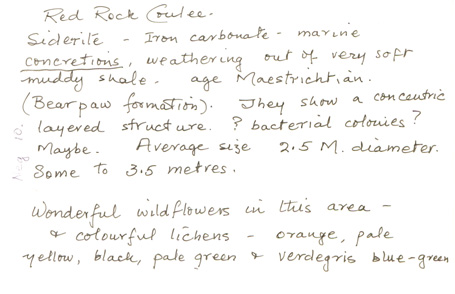 Red Rock Coulee.
Siderite - Iron carbonate - marine
concretions, weathering out of very soft
muddy shale. age Maestrichtian.
(Bearpaw formation). They show a concentric
layered structure. ? bacterial colonies?
Maybe. Average size 2.5 M. diameter.
Some to 3.5 metres.
Wonderful wildflowers in this area -
& colourful lichens - orange, pale
yellow, black, pale green & verdegris blue-green
Neg 10.